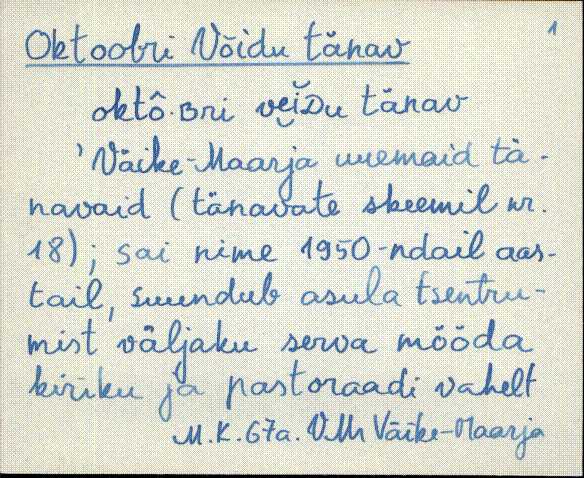 1
Oktoobri Võidu tänav
oktô·ʙri vei̯ᴅu tänav
'Väike-Maarja uuemaid tä-
navaid (tänavate skeemil nr.
18); sai nime 1950-ndail aas-
tail, suundub asula tsentru-
mist väljaku serva mööda
kiriku ja pastoraadi vahelt
M.K. 67a. VMr Väike-Maarja